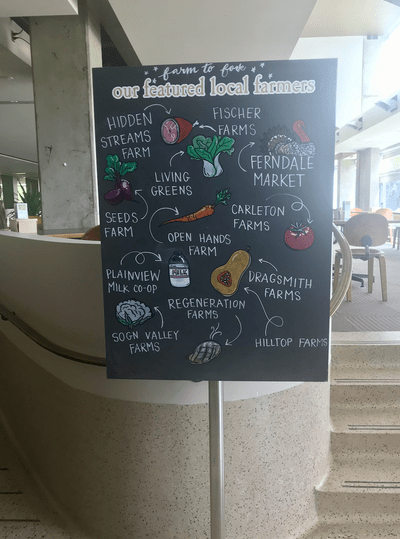 farm to fork
our featured local farmers
HIDDEN
STREAMS
FARM
FISCHER
FARMS
LIVING
GREENS
FERNDALE
MARKET
SEEDS
FARM
CARLETON
FARMS
OPEN HANDS
FARM
PLAINVIEW
MILK CO-OP
MILK
DRAGSMITH
FARMS
REGENERATION
FARMS
SOGN VALLEY
FARMS
HILLTOP FARMS